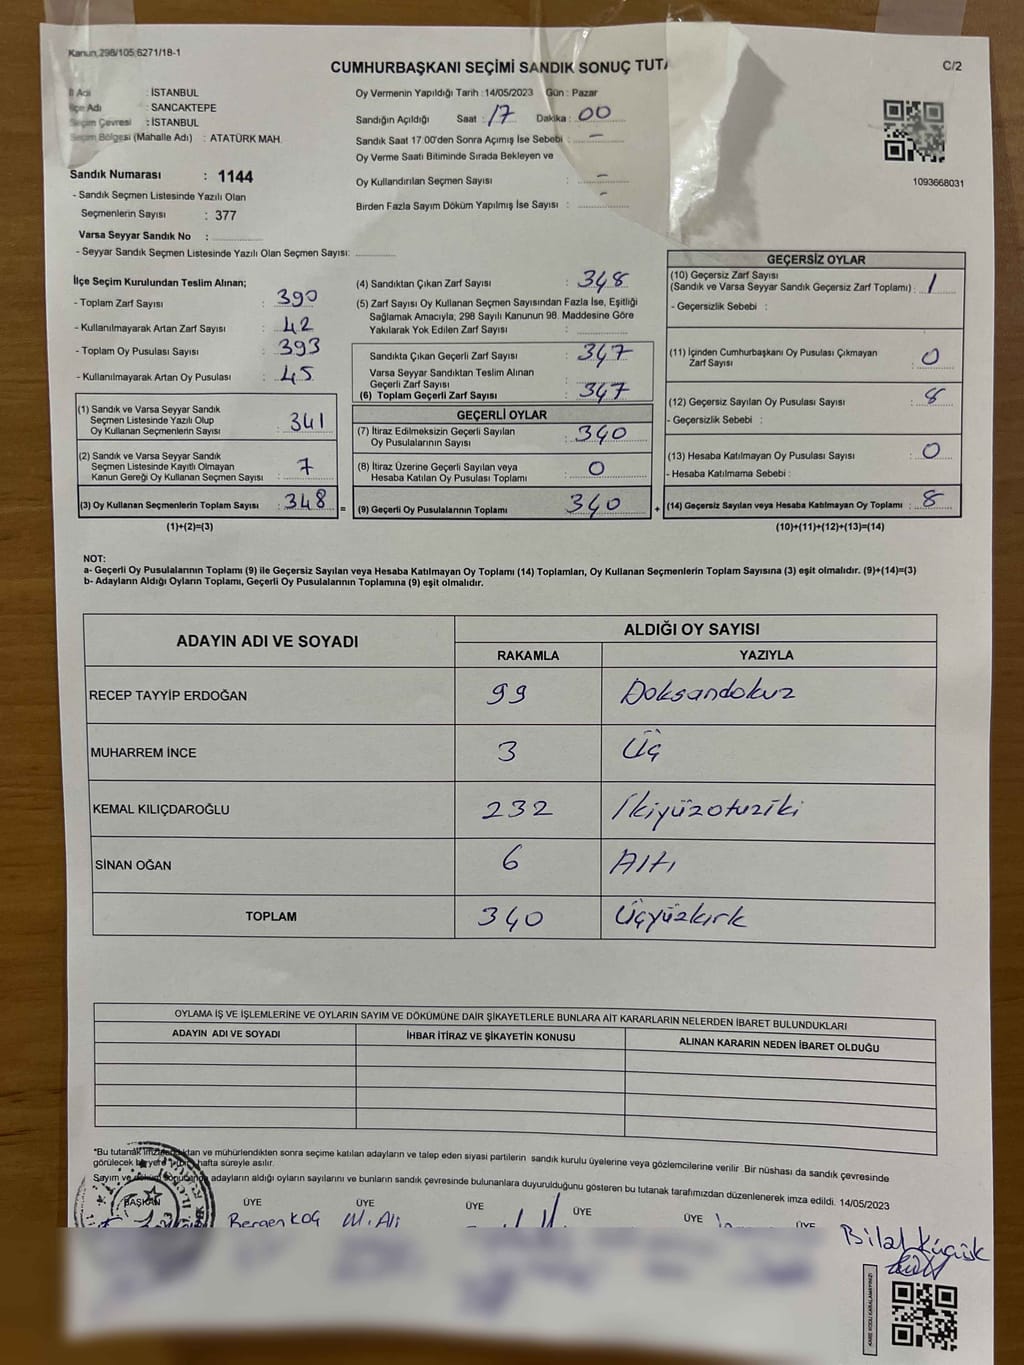 Kanun 298/105 6271/18-1
CUMHURBAŞKANI SEÇİMİ SANDIK SONUÇ TUTA
C/2
İl Adı : İSTANBUL
İlçe Adı : SANCAKTEPE
Seçim Çevresi : İSTANBUL
Seçim Bölgesi (Mahalle Adı) : ATATÜRK MAH.
Sandık Numarası : 1144
- Sandık Seçmen Listesinde Yazılı Olan
Seçmenlerin Sayısı : 377
Varsa Seyyar Sandık No :
- Seyyar Sandık Seçmen Listesinde Yazılı Olan Seçmen Sayısı:
Oy Vermenin Yapıldığı Tarih : 14/05/2023 Gün : Pazar
Sandığın Açıldığı Saat : 17 Dakika : 00
Sandık Saat 17.00'den Sonra Açımış İse Sebebi : -
Oy Verme Saati Bitiminde Sırada Bekleyen ve
Oy Kullandırılan Seçmen Sayısı : -
Birden Fazla Sayım Döküm Yapılmış İse Sayısı : -
1093668031
İlçe Seçim Kurulundan Teslim Alınan;
- Toplam Zarf Sayısı : 390
- Kullanılmayarak Artan Zarf Sayısı : 42
- Toplam Oy Pusulası Sayısı : 393
- Kullanılmayarak Artan Oy Pusulası : 45
(1) Sandık ve Varsa Seyyar Sandık
Seçmen Listesinde Yazılı Olup
Oy Kullanan Seçmenlerin Sayısı : 341
(2) Sandık ve Varsa Seyyar Sandık
Seçmen Listesinde Kayıtlı Olmayan
Kanun Gereği Oy Kullanan Seçmen Sayısı : 7
(3) Oy Kullanan Seçmenlerin Toplam Sayısı : 348 =
(1)+(2)=(3)
(4) Sandıktan Çıkan Zarf Sayısı : 348
(5) Zarf Sayısı Oy Kullanan Seçmen Sayısından Fazla İse, Eşitliği
Sağlamak Amacıyla, 298 Sayılı Kanunun 98. Maddesine Göre
Yakılarak Yok Edilen Zarf Sayısı :
Sandıkta Çıkan Geçerli Zarf Sayısı : 347
Varsa Seyyar Sandıktan Teslim Alınan
Geçerli Zarf Sayısı :
(6) Toplam Geçerli Zarf Sayısı : 347
GEÇERLİ OYLAR
(7) İtiraz Edilmeksizin Geçerli Sayılan
Oy Pusulalarının Sayısı : 340
(8) İtiraz Üzerine Geçerli Sayılan veya
Hesaba Katılan Oy Pusulası Toplamı : 0
(9) Geçerli Oy Pusulalarının Toplamı : 340 +
GEÇERSİZ OYLAR
(10) Geçersiz Zarf Sayısı
(Sandık ve Varsa Seyyar Sandık Geçersiz Zarf Toplamı) : 1
- Geçersizlik Sebebi :
(11) İçinden Cumhurbaşkanı Oy Pusulası Çıkmayan
Zarf Sayısı : 0
(12) Geçersiz Sayılan Oy Pusulası Sayısı : 8
- Geçersizlik Sebebi :
(13) Hesaba Katılmayan Oy Pusulası Sayısı : 0
- Hesaba Katılmama Sebebi :
(14) Geçersiz Sayılan veya Hesaba Katılmayan Oy Toplamı : 8
(10)+(11)+(12)+(13)=(14)
NOT:
a- Geçerli Oy Pusulalarının Toplamı (9) ile Geçersiz Sayılan veya Hesaba Katılmayan Oy Toplamı (14) Toplamları, Oy Kullanan Seçmenlerin Toplam Sayısına (3) eşit olmalıdır. (9)+(14)=(3)
b- Adayların Aldığı Oyların Toplamı, Geçerli Oy Pusulalarının Toplamına (9) eşit olmalıdır.
ADAYIN ADI VE SOYADI ALDIĞI OY SAYISI
RAKAMLA YAZIYLA
RECEP TAYYİP ERDOĞAN 99 Doksandokuz
MUHARREM İNCE 3 Üç
KEMAL KILIÇDAROĞLU 232 İkiyüzotuziki
SİNAN OĞAN 6 Altı
TOPLAM 340 Üçyüzkırk
OYLAMA İŞ VE İŞLEMLERİNE VE OYLARIN SAYIM VE DÖKÜMÜNE DAİR ŞİKAYETLERLE BUNLARA AİT KARARLARIN NELERDEN İBARET BULUNDUKLARI
ADAYIN ADI VE SOYADI İHBAR İTİRAZ VE ŞİKAYETİN KONUSU ALINAN KARARIN NEDEN İBARET OLDUĞU
*Bu tutanak ve mühürlendikten sonra seçime katılan adayların ve talep eden siyasi partilerin sandık kurulu üyelerine veya gözlemcilerine verilir .Bir nüshası da sandık çevresinde
görülecek bir yere hafta süreyle asılır.
Sayım ve adayların aldığı oyların sayılarını ve bunların sandık çevresinde bulunanlara duyurulduğunu gösteren bu tutanak tarafımızdan düzenlenerek imza edildi. 14/05/2023
BAŞKAN ÜYE ÜYE ÜYE ÜYE ÜYE ÜYE
Bergen KOÇ M. Ali
Bilal Küçük